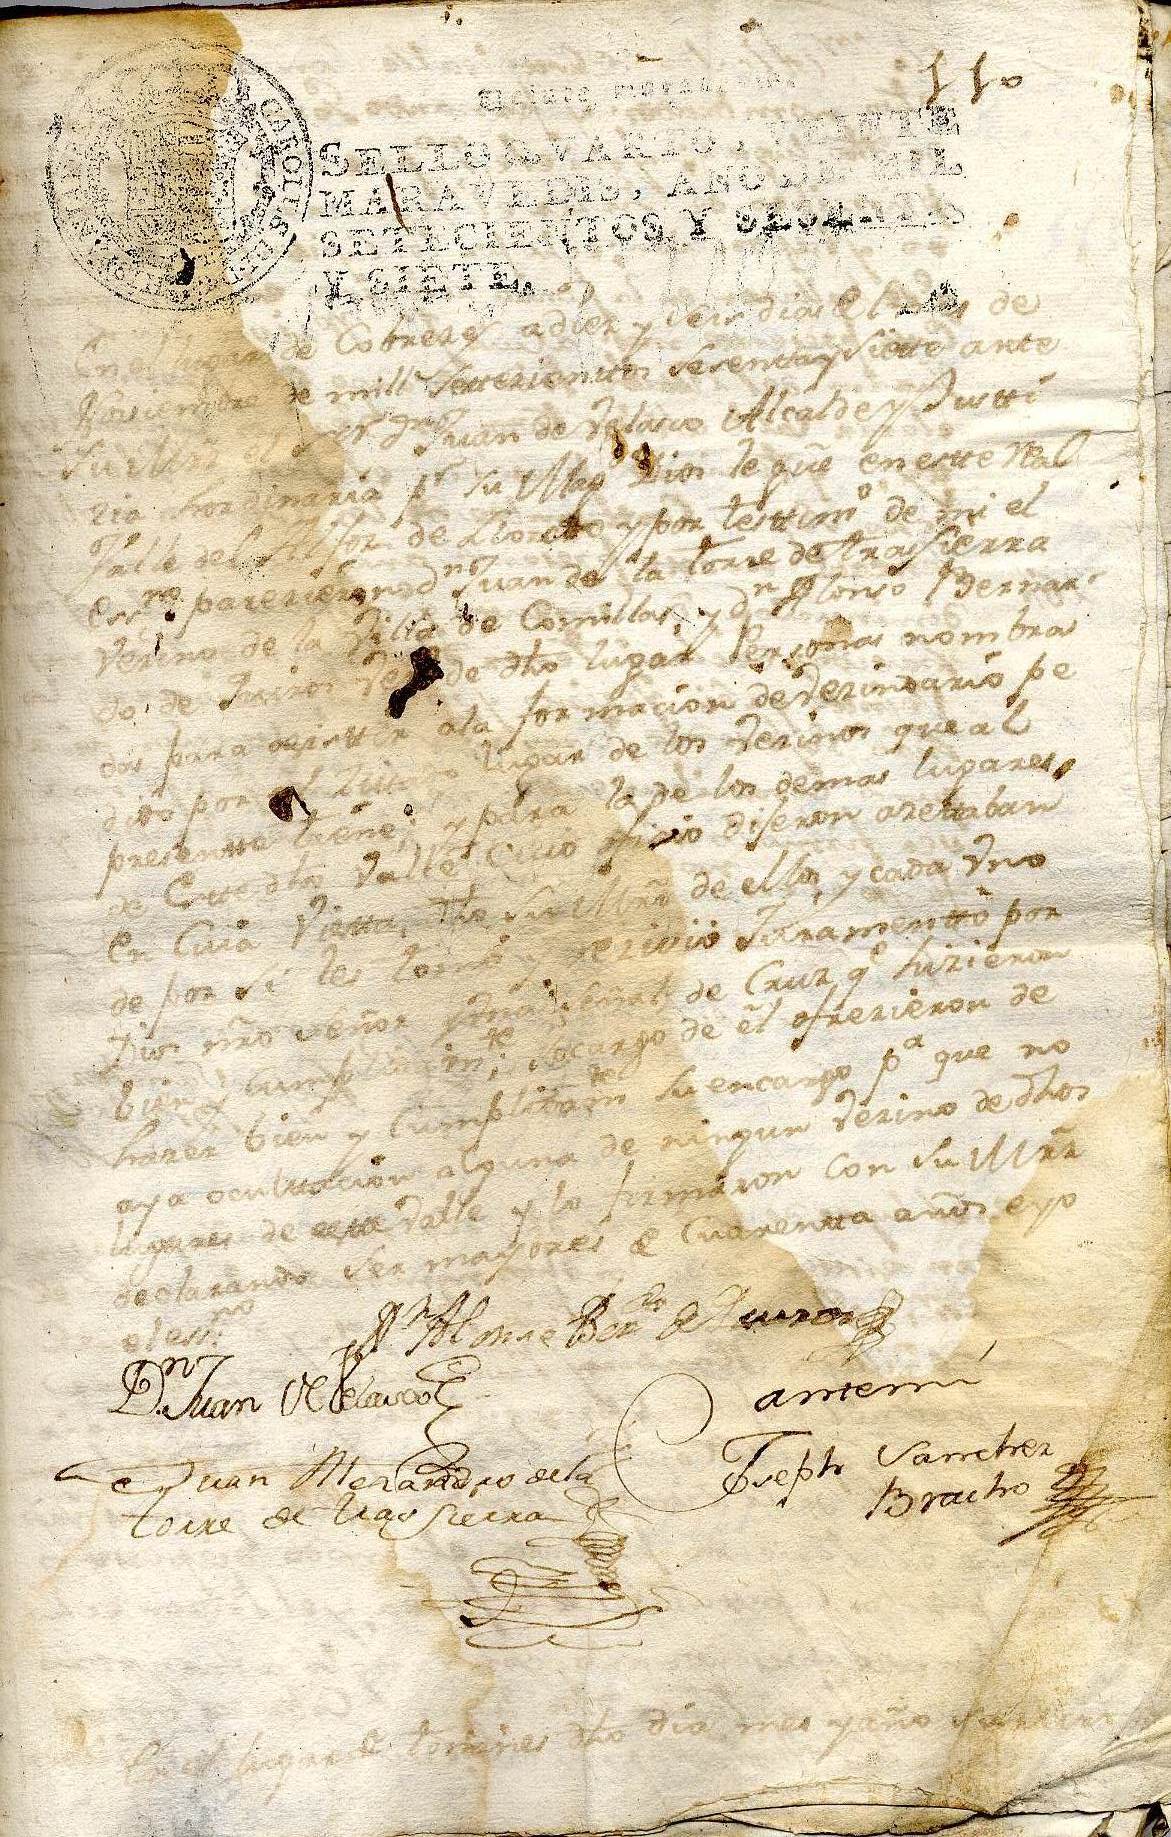 110
SELLO QVARTO, VEINTE
MARAVEDIS, AÑO DE MIL
SETECIENTOS Y SESENTA
Y SIETE.
CAROLUS
En el lugar de Cobrezes a diez y seis dias el mes de
Noviembre de mill settezientos sesentta y siette ante
su Mrd el sr Dn Juan de Velasco Alcalde y Justti
zia hordinaria pr su Magd Dios le gue en estte Rl
Valle de Alfoz de Lloredo y por testtimo de mi el
essno parezieron dn Juan de la torre de trasierra
Vezino de la Villa de Comillas, y dn Alonso Bernar
do de Quiros Vezo de dho lugar Personas nombra
das para asisttir a la formazion de Vezindario pe
dido por el zittado lugar de los Vezinos que al
presentte tiene, y para la de los demas lugares
de estte dho Valle Cuio ofizio dijeron azettaban
en Cuia Vistta dho su Mrd de ellos y cada Vno
de por si les tomó y rezivio Juramentto por
Dios nro señor y Vna señal de Cruz qe hizieron
bien y cumplidamte, so cargo de el ofrezieron de
hazer bien y cumplidamte su encargo pa que no
aya ocultazion alguna de ningun Vezino de dhos
lugares de estte Valle y lo firmaron con su Mrd
declarando ser mayores de Cuarentta años eyo
el essno
Dn Alonso Berdo de Quiros
Dn Juan de Velasco
antemi
Juan Anttonio de la
torre de trassierra
Joseph Sanchez
Bracho
En el lugar de tonanes dho dia mes y año